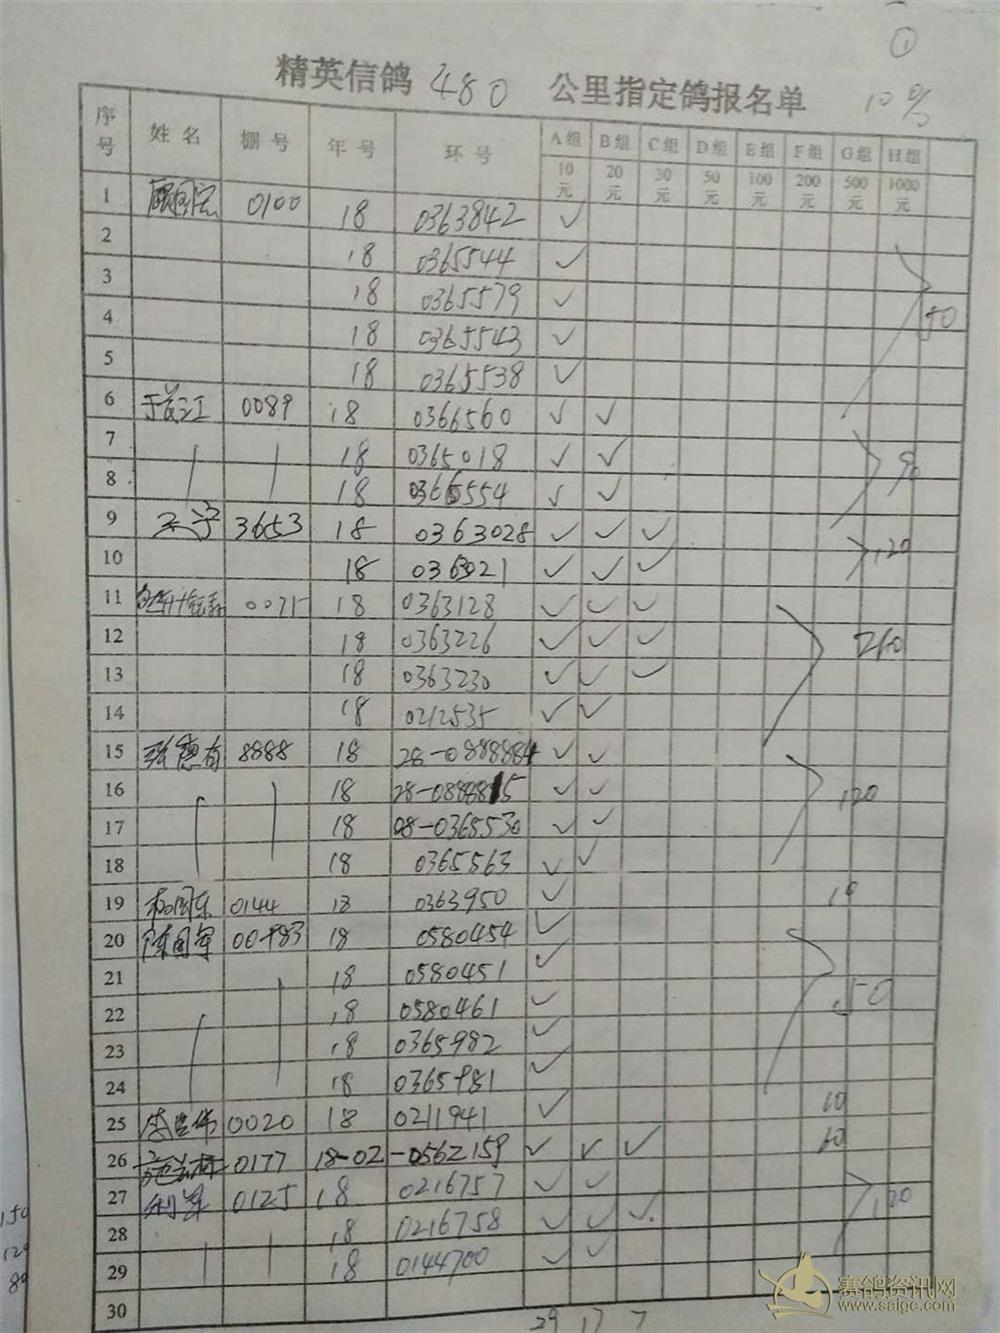 ①
精英信鸽 480 公里指定鸽报名单 10%
序号 姓名 棚号 年号 环号 A组 B组 C组 D组 E组 F组 G组 H组
10元 20元 30元 50元 100元 200元 500元 1000元
1 顾国宏 0100 18 0363842 ✓
2 18 0365544 ✓
3 18 0365579 ✓ 50
4 18 0365543 ✓
5 18 0365538 ✓
6 0089 18 0366560 ✓ ✓
7 18 0365018 ✓ ✓ 90
8 18 0365554 ✓ ✓
9 王宁 3653 18 0363028 ✓ ✓ ✓
10 18 0363021 ✓ ✓ ✓ 120
11 18 0363128 ✓ ✓ ✓
12 18 0363226 ✓ ✓ ✓ 210
13 18 0363230 ✓ ✓ ✓
14 18 0212535 ✓ ✓
15 张德有 8888 18 28-0888884 ✓ ✓
16 18 28-0888815 ✓ ✓ 120
17 18 08-0365530 ✓ ✓
18 18 0365563 ✓ ✓
19 杨国东 0144 18 0363950 ✓ 10
20 陈国军 18 0580454 ✓
21 18 0580451 ✓
22 18 0580461 ✓ 50
23 18 0365982 ✓
24 18 0365981 ✓
25 0020 18 0211941 ✓ 10
26 0177 18-02-0562159 ✓ ✓ ✓ 60
27 利军 0125 18 0216757 ✓ ✓
28 18 0216758 ✓ ✓ ✓ 120
29 18 0144700 ✓ ✓
30
29 17 7
150
120
80
赛鸽资讯网
www.saigc.com